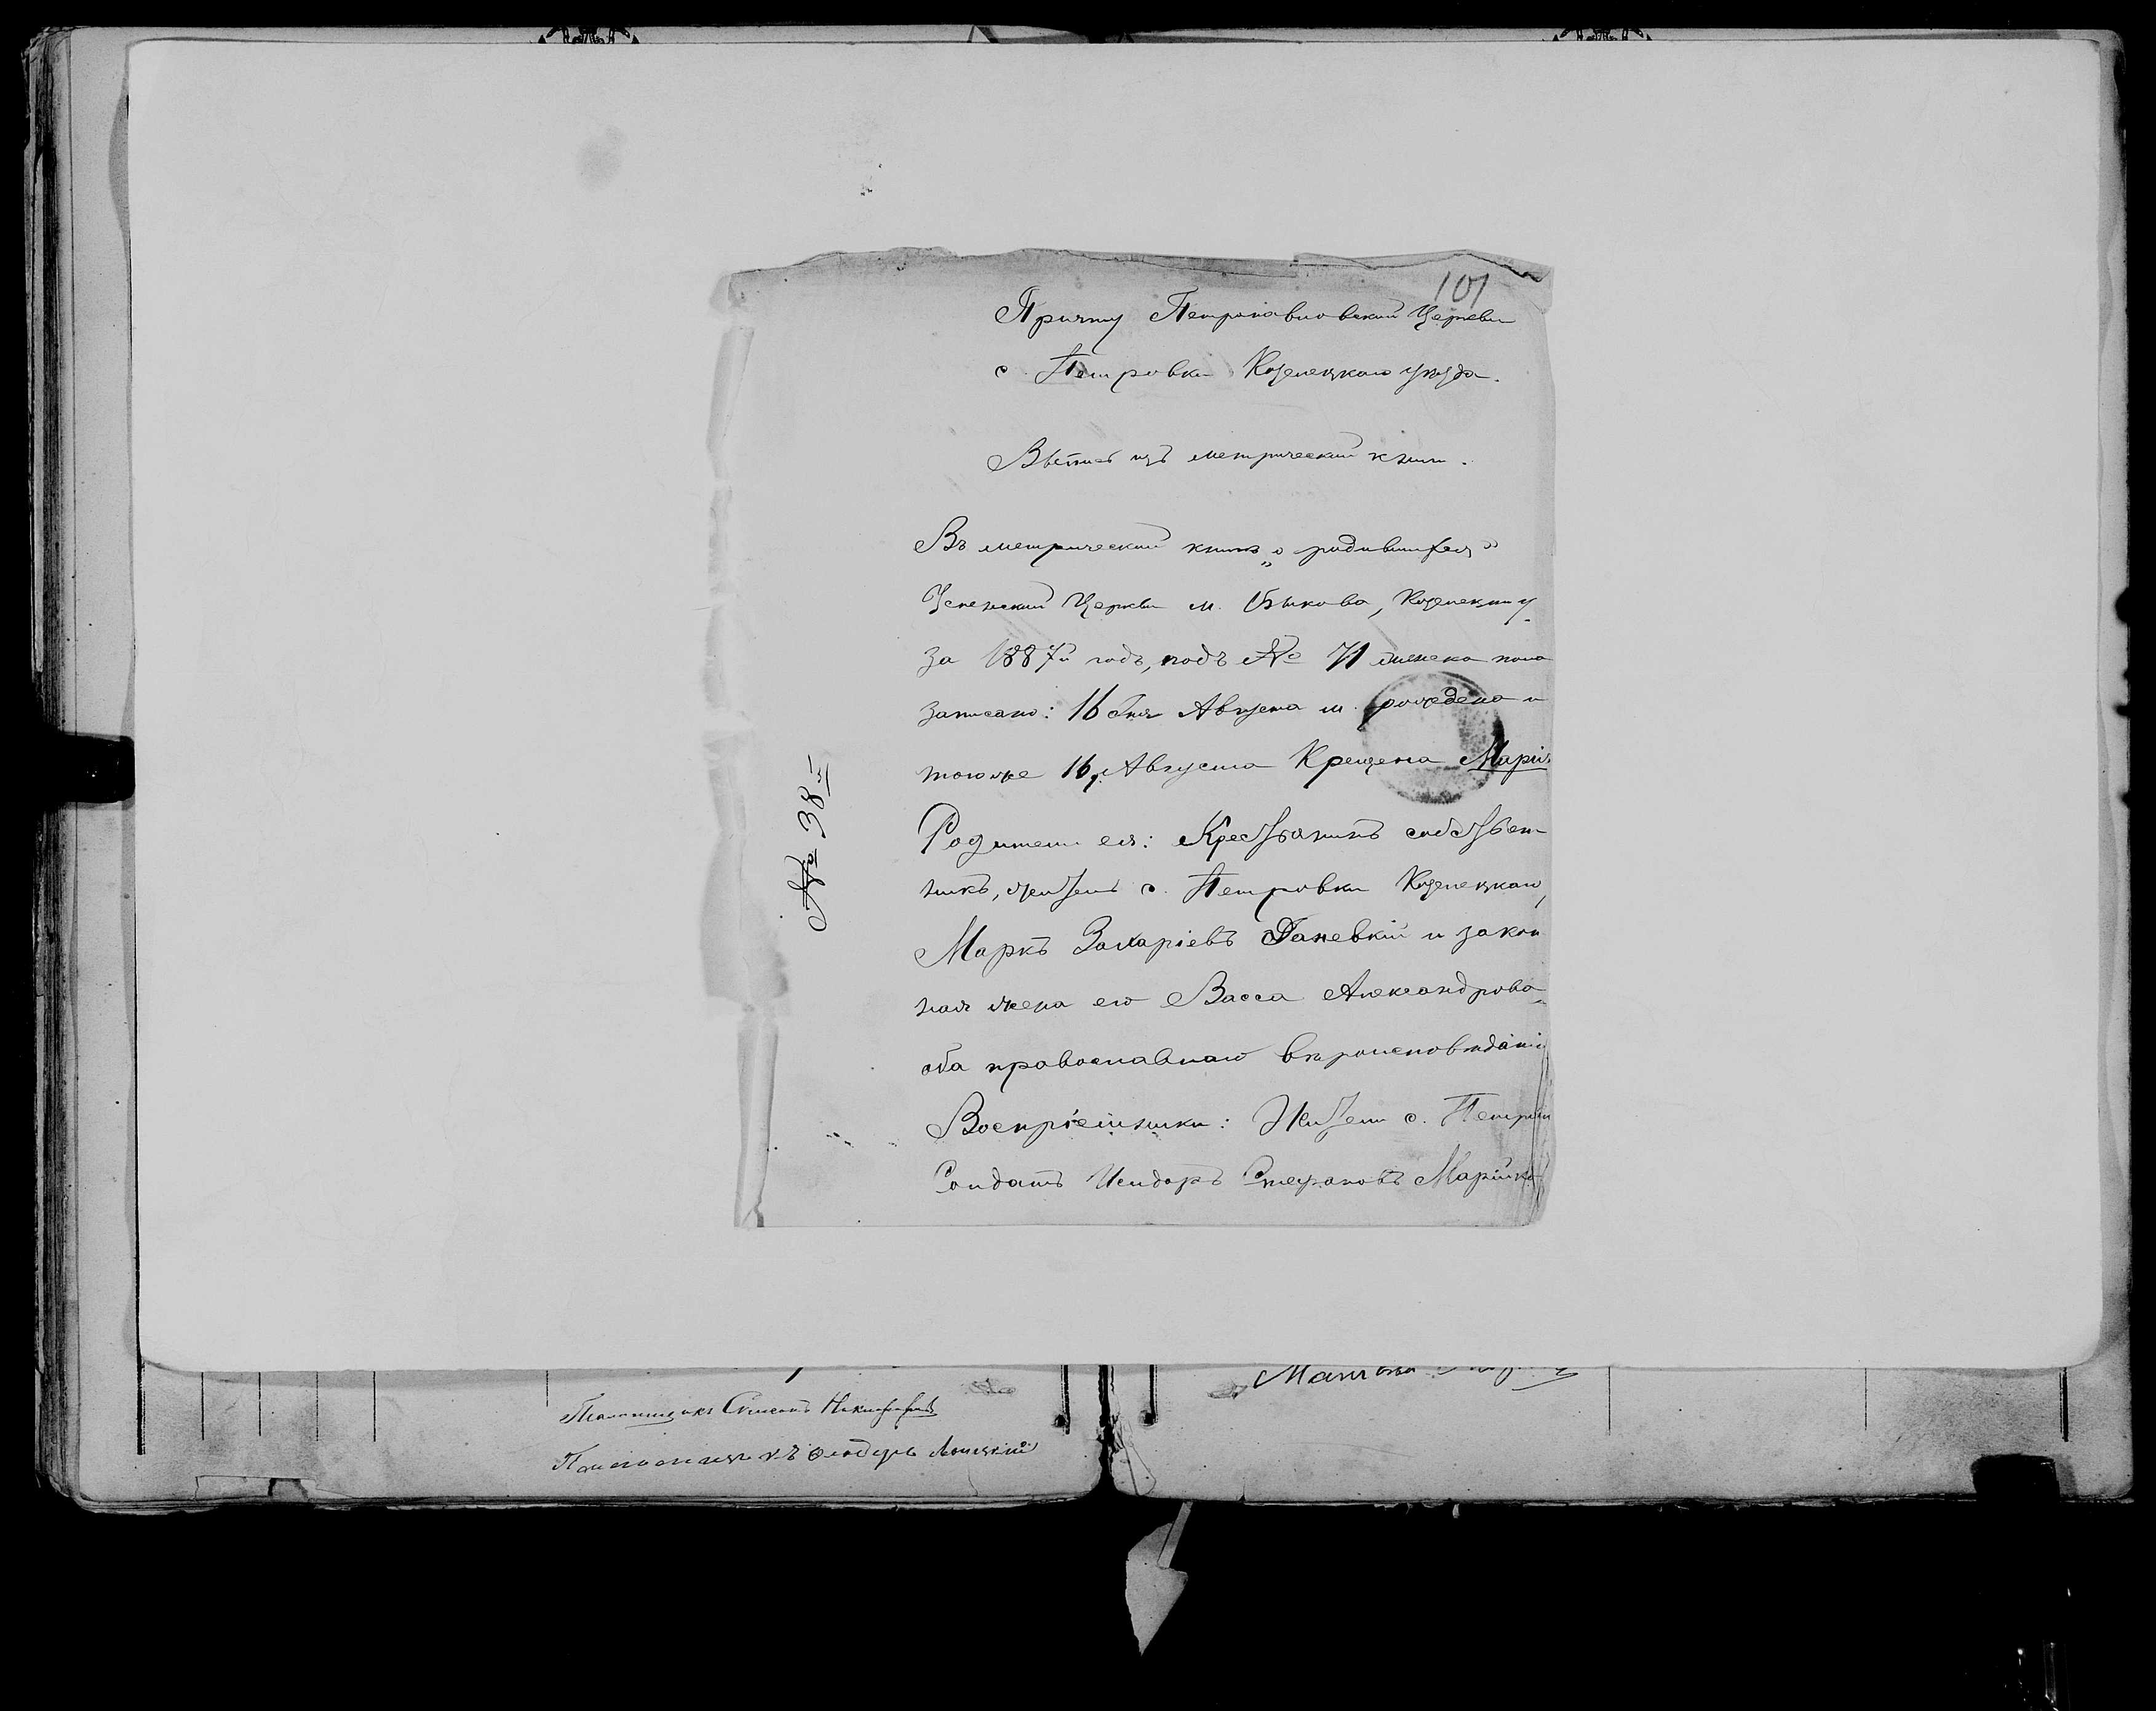 101
Причту Петропавловской Церкви
с. Петровки Козелецкаго уѣзда.
Выпись изъ метрической книги.
Въ метрической книгѣ „о родившихся"
Успенской Церкви м. Быкова, Козелецк. у.
за 1887й годъ, подъ № 71 женска пола
записано: 16 дня Августа м. рождена и
того же 16, Августа Крещена Марія.
Родители ея: Крестьянинъ собствен-
никъ, житель с. Петровки Козелецкаго,
Маркъ Захаріевъ Ганевкій и закон
ная жена его Васса Александрова
оба православнаго вѣроисповѣданія
Воспріемники: Жители с. Петров
Солдатъ Исидоръ Стефановъ Марійко
№ 38й
Симеонъ Никифоровъ
Псаломщикъ Ѳеодоръ